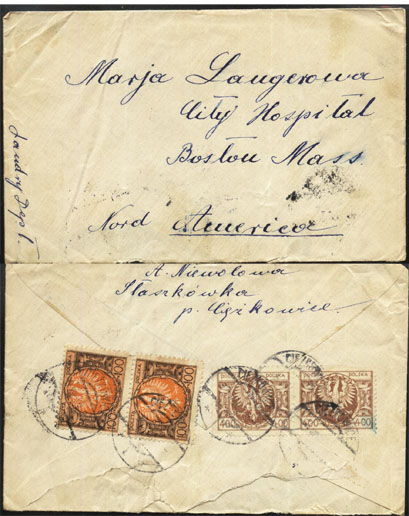 Marja Laugerowa
City Hospital
Boston Mass.
Nord America
A. Niewolowa
Staszkówka
p. Ciężkowice
100
100
POLSKA
400
400
POLSKA
400
400